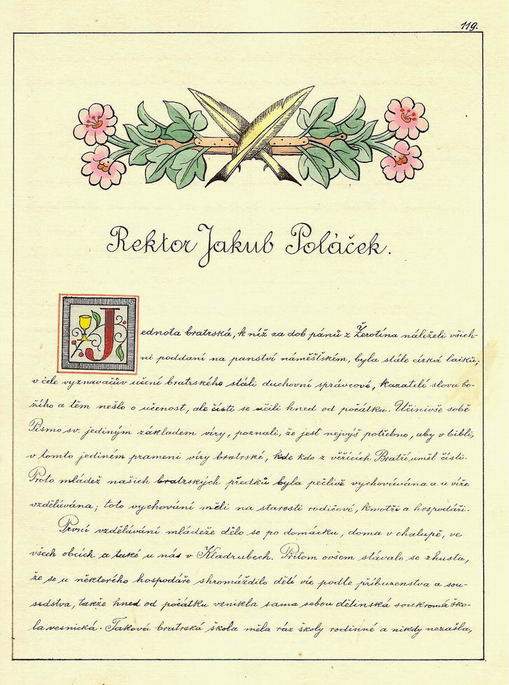 119.
Rektor Jakub Poláček.
Jednota bratrská, k níž za dob pánů z Žerotína náleželi všich-
ni poddaní na panství náměšťském, byla stále církví laiků;
v čele vyznavačů učení bratrského stáli duchovní správcové, kazatelé slova bo-
žího a těm nešlo o učenost, ale čísti se učili hned od počátku. Učinivše sobě
Písmo sv. jediným základem víry, poznali, že jest nejvýš potřebno, aby v bibli,
v tomto jediném prameni víry bratrské, kde kdo z věřících Bratří uměl čísti.
Proto mládež našich bratrských předků byla pečlivě vychovávána a u víře
vzdělávána; toto vychování měli na starosti rodičové, kmotři a hospodáři.
První vzdělávání mládeže dělo se po domácku, doma v chalupě, ve
všech obcích a také u nás v Kladrubech. Přitom ovšem stávalo se zhusta,
že se u některého hospodáře shromáždilo dětí víc podle příbuzenstva a sou-
sedstva, takže hned od počátku vznikla sama sebou dětinská soukromá ško-
la vesnická. Taková bratrská škola měla ráz školy rodinné a nikdy nezašla,